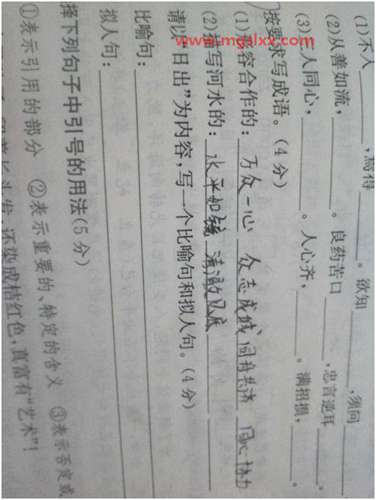 (1)不入______,焉得______。欲知______,须问______
(2)从善如流,______。良药苦口______,忠言逆耳______。
(3)二人同心,______。人心齐,______。满招损,______。
按要求写成语。(4分)
(1)形容合作的: 万众一心 众志成城 同舟共济 同心协力
(2)描写河水的: 水平如镜 清澈见底
请以“日出”为内容,写一个比喻句和拟人句。(4分)
比喻句:
拟人句:
择下列句子中引号的用法(5分)
①表示引用的部分 ②表示重要的、特定的含义 ③表示否定或
着长头发,还染成桔红色,真富有“艺术”!